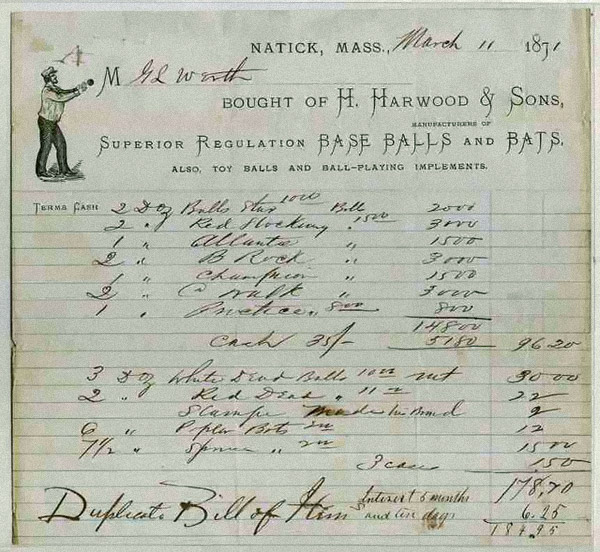 NATICK, MASS., March 11 1871
M G L Werth
BOUGHT OF H. HARWOOD & SONS,
MANUFACTURERS OF
SUPERIOR REGULATION BASE BALLS AND BATS,
ALSO, TOY BALLS AND BALL-PLAYING IMPLEMENTS.
TERMS CASH 2 Doz Balls Star 1000 Ball 2000
2 " Red Stocking " 1500 3000
1 " Atlantic " 1500
2 " B Rock " 3000
1 " Champion " 1500
2 " C Walk " 3000
1 " Practice " 800 800
14800
Cash 35/- 5180 96.20
3 Doz White Dead Balls 1000 net 30 00
2 " Red Dead " 11 00 22
Stamps 2
6 " Poplar Bats 2 00 12
7 1/2 " Spruce " 2 00 15 00
3 cases 1 50
178.70
Duplicate Bill of Interest 6 months 6.25
and ten days 184.95